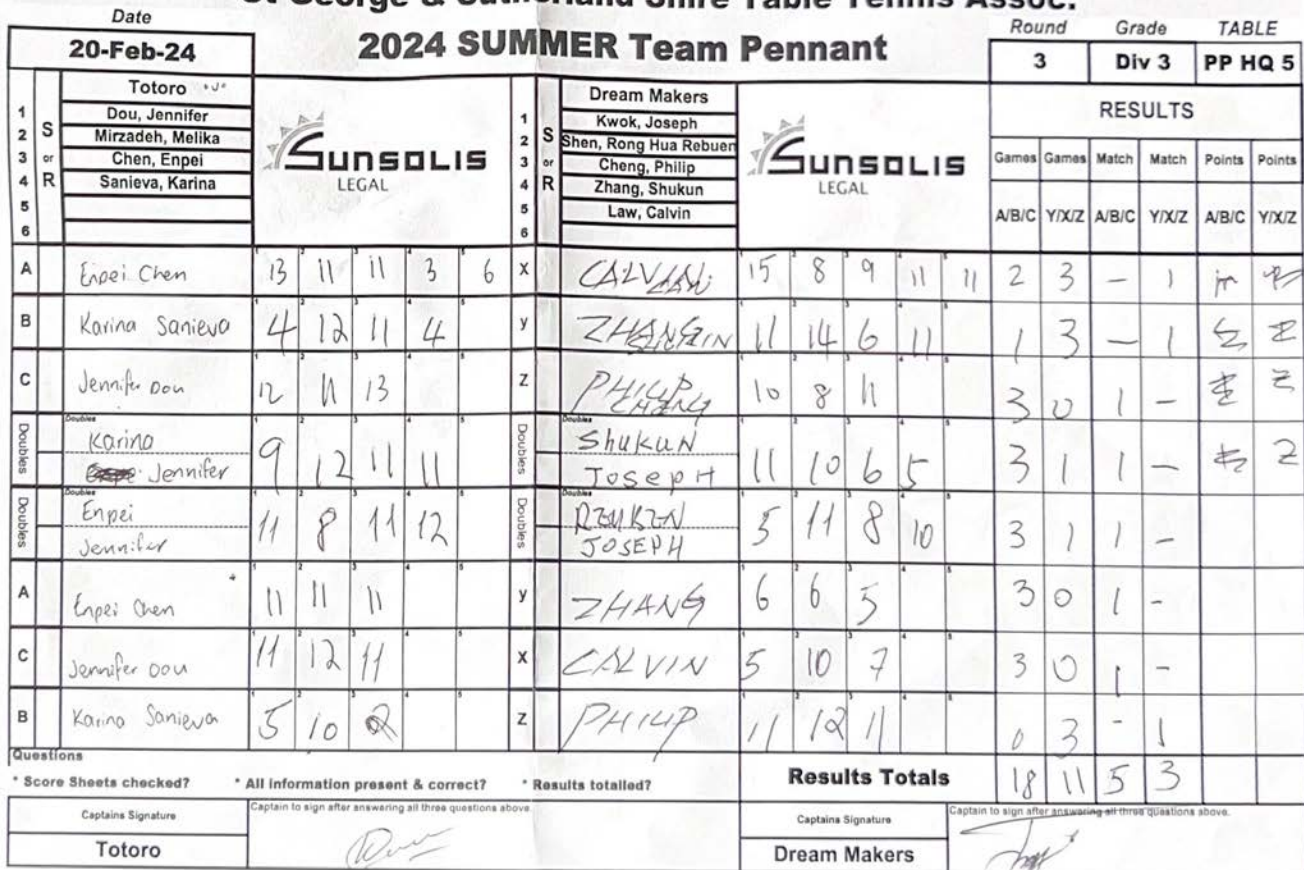 St George & Sutherland Shire Table Tennis Assoc.
Date
20-Feb-24
2024 SUMMER Team Pennant
Round Grade TABLE
3 Div 3 PP HQ 5
Totoro
1 Dou, Jennifer
2 Mirzadeh, Melika
3 Chen, Enpei
4 Sanieva, Karina
5
6
S or R
SUNSOLIS
LEGAL
Dream Makers
1 Kwok, Joseph
2 Shen, Rong Hua Rebuen
3 Cheng, Philip
4 Zhang, Shukun
5 Law, Calvin
6
S or R
SUNSOLIS
LEGAL
RESULTS
Games Games Match Match Points Points
A/B/C Y/X/Z A/B/C Y/X/Z A/B/C Y/X/Z
A Enpei Chen 13 11 11 3 6 X CALVIN 15 8 9 11 11 2 3 - 1
B Karina Sanieva 4 12 11 4 y ZHANG 11 14 6 11 1 3 - 1
C Jennifer Dou 12 11 13 Z PHILIP CHENG 10 8 11 3 0 1 -
Doubles Karina 9 12 11 11 Doubles Shukun 11 10 6 5 3 1 1 -
Jennifer Joseph
Doubles Enpei 11 8 11 12 Doubles REUBEN 5 11 8 10 3 1 1 -
Jennifer JOSEPH
A Enpei Chen 11 11 11 y ZHANG 6 6 5 3 0 1 -
C Jennifer Dou 11 12 11 X CALVIN 5 10 7 3 0 1 -
B Karina Sanieva 5 10 Z PHILIP 11 12 11 0 3 - 1
Questions
* Score Sheets checked? * All information present & correct? * Results totalled?
Results Totals 18 11 5 3
Captains Signature
Captain to sign after answering all three questions above.
Totoro
Captains Signature
Captain to sign after answering all three questions above.
Dream Makers